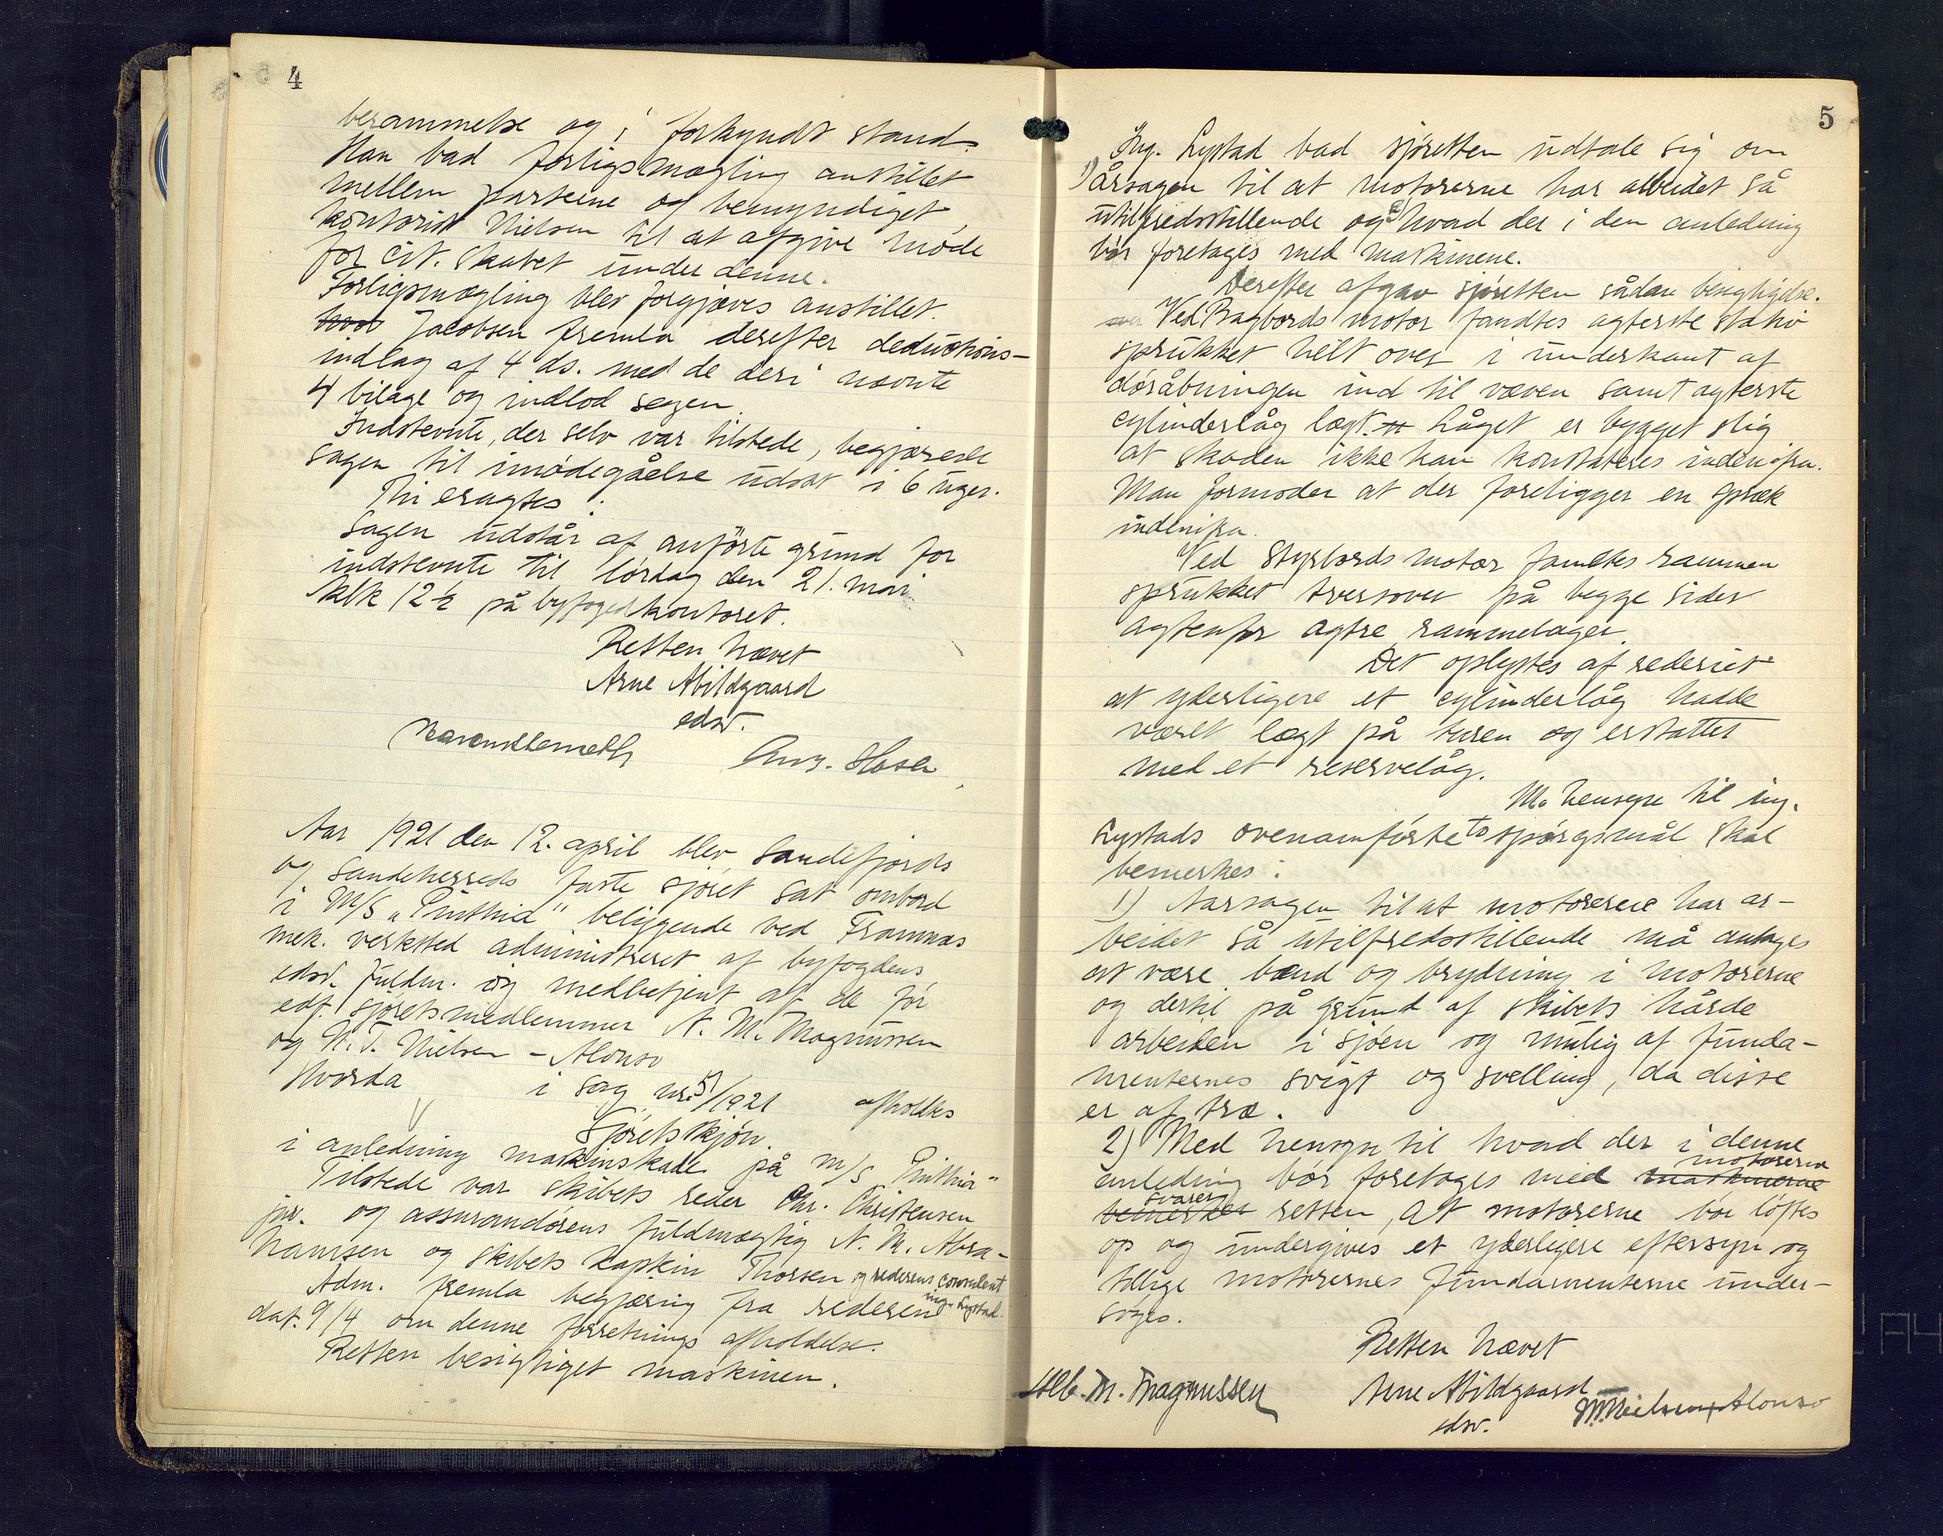 4
berammelse og i forkyndt stand.
Han bad forligsmægling anstillet
mellem parterne og bemyndiget
kontorist Nielsen til at afgive møde
for cit. skabet under denne.
Forligsmægling blev forgjæves anstillet.
Jacobsen fremla derefter deduktions-
indlag af 4 ds. med de deri nævnte
4 bilage og indlod sagen.
Indstevnte, der selv var tilstede, begjærede
sagen til imødegåelse udsat i 6 uger.
Thi eragtes:
Sagen udstår af anførte grund for
indstevnte til lørdag den 21. mai
klk 12½ på byfogedkontoret.
Retten hævet
Arne Abildgaard
edsv.
Aug. Hasle
Aar 1921 den 12. april blev Sandefjords
og Sandeherreds faste sjøret sat ombord
i M/S "Pinthia" beliggende ved Framnæs
mek. verksted administreret af byfogdens
edsv. fuldm. og medbetjent af de før
edf. sjøretsmedlemmer A. M. Magnussen
og N. T. Nielsen - Alonso
Hvorda i sag nr. 5/1921 afholdtes
Sjøretsskjøn.
i anledning maskinskade på M/S "Pinthia"
Tilstede var skibets reder Chr. Christensen
jr. og assurandørens fuldmægtig N. M. Abra-
hamsen og skibets kaptein Thorsen og rederens consulent
ing. Lystad.
Adm. fremla begjæring fra rederen
dat. 9/4 om denne forretnings afholdelse.
Retten besigtiget maskinen.
5
Ing. Lystad bad sjøretten udtale sig om
1) årsagen til at motorerne har arbeidet så
utilfredsstillende og 2) hvad der i den anledning
bør foretages med maskinene.
Derefter afgav sjøretten sådan besigtigelse.
Ved Bagbords motor fandtes agterste stativ
sprukket helt over i underkant af
døråbningen ind til væven samt agterste
cylinderlåg lægt. Låget er bygget slig
at skaden ikke kan konstateres indenifra.
Man formoder at der foreligger en spræk
indenifra.
Ved Styrbords motor fandtes rammen
sprukket tversover på begge sider
agtenfor agtre rammelager.
Det oplystes af rederiet
at yderligere et cylinderlåg hadde
været lægt på turen og erstattet
med et reservelåg.
M. hensyn til ing.
Lystads ovenanførte to spørgsmål skal
bemerkes:
1) Aarsagen til at motorerne har ar-
beidet så utilfredsstilende må antages
at være bænd og brydning i motorerne
og dertil på grund af skibets hårde
arbeiden i sjøen og mulig af funda-
menternes svigt og svelling, da disse
er af træ.
2) Med hensyn til hvad der i denne
anledning bør foretages med maskinerne motorerne
bemerker svarer retten, at motorerne bør løftes
op og undergives et yderligere eftersyn og
tillige motorernes fundamenterne under-
søges.
Retten hævet
Alb. M. Magnussen Arne Abildgaard N. T. Nielsen-Alonso
edsv.